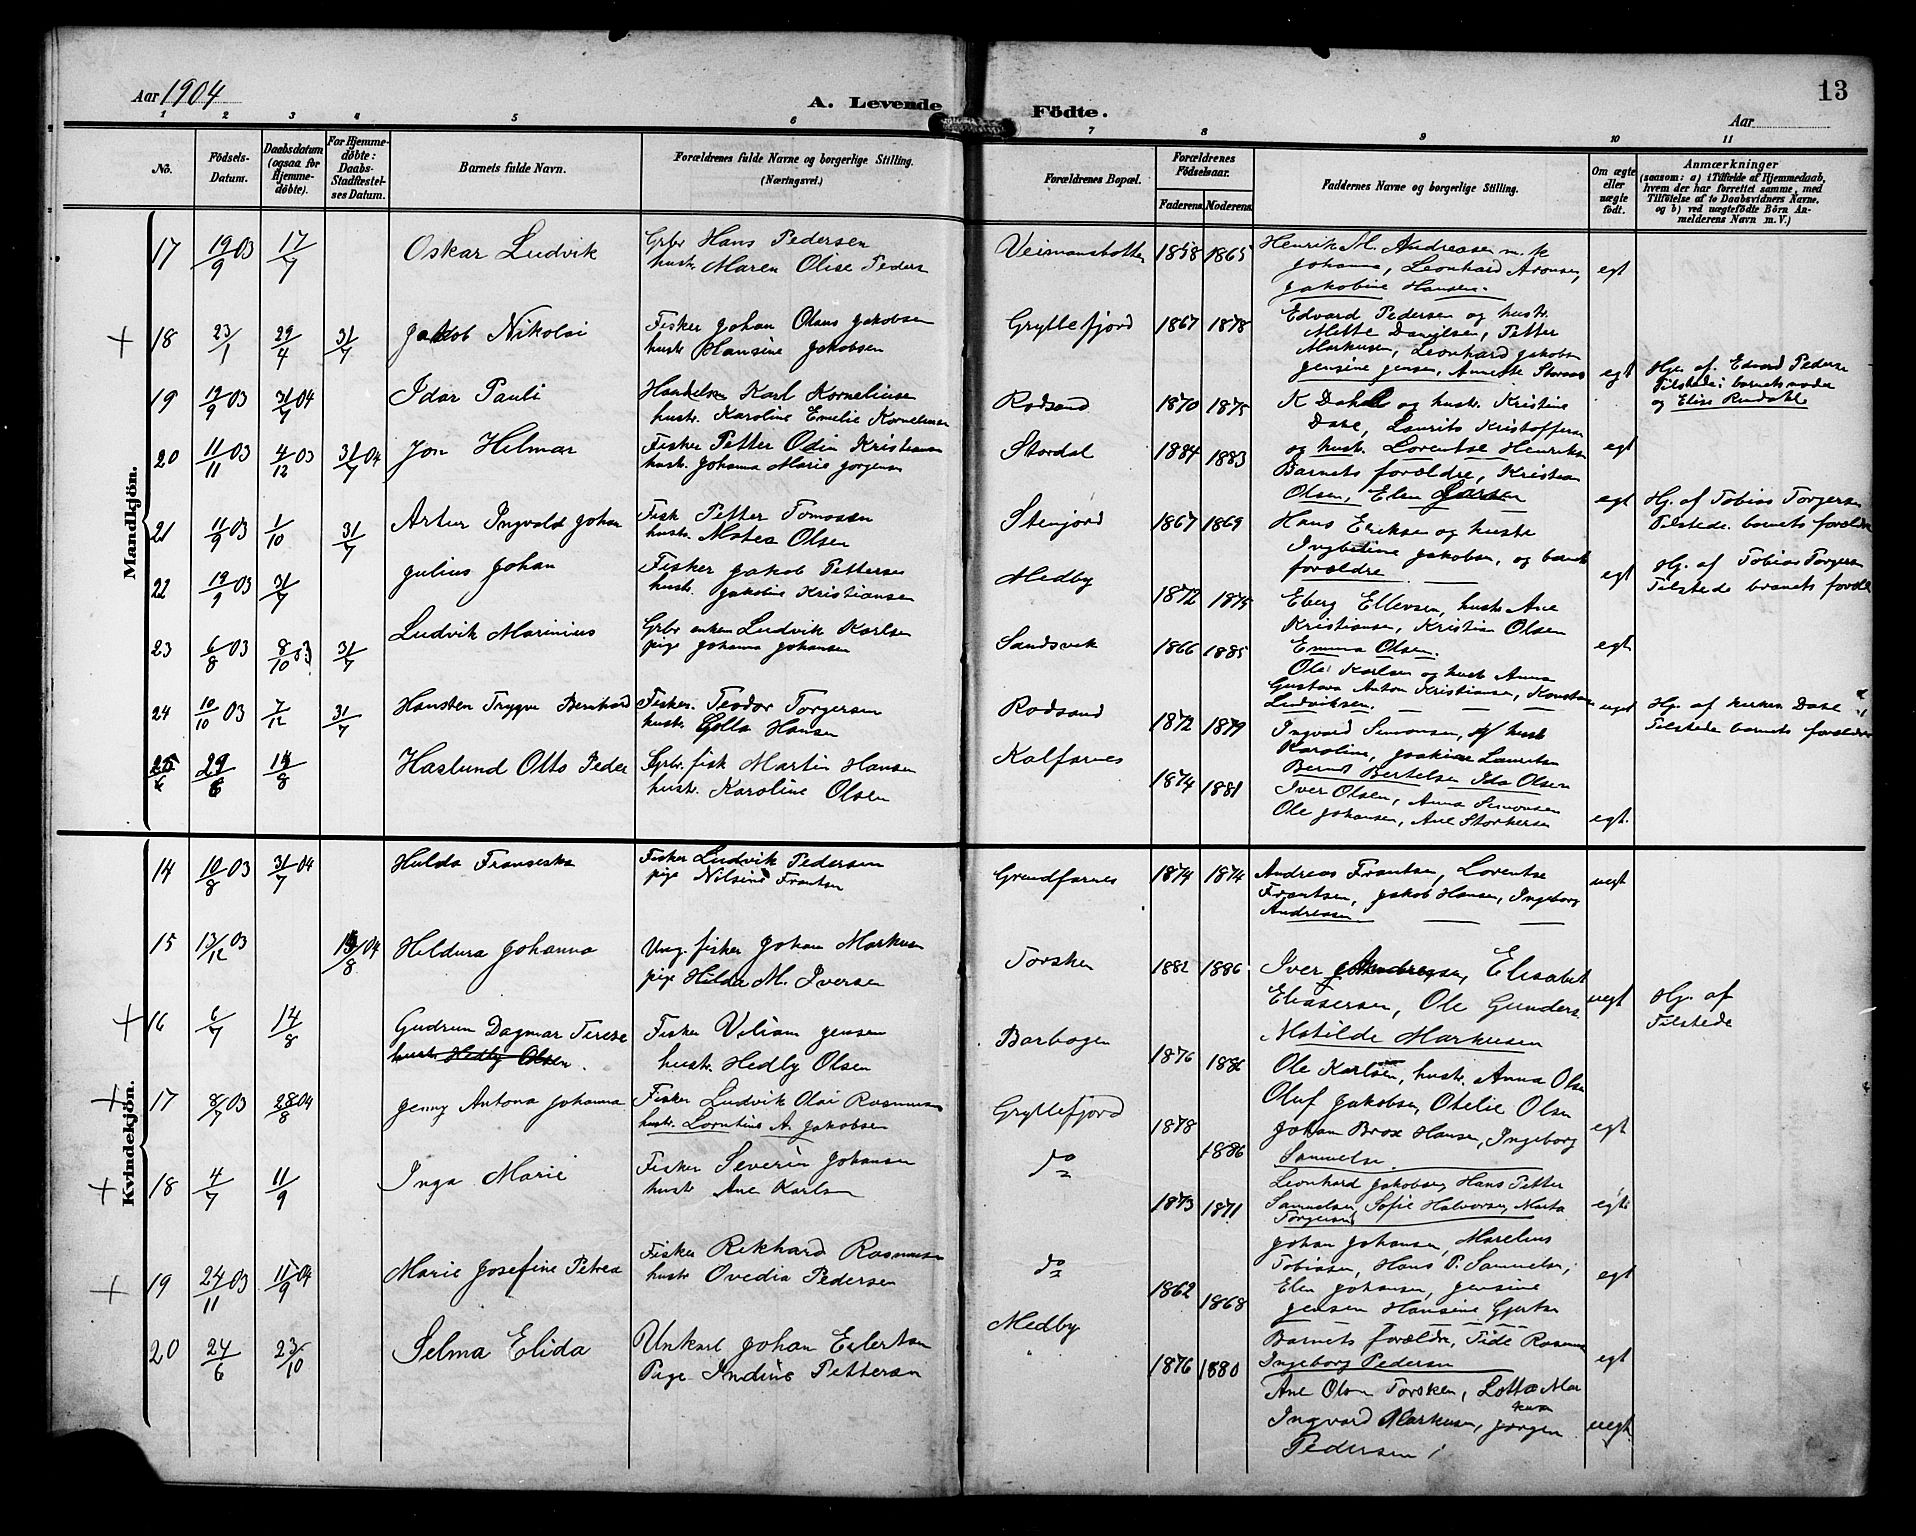 Aar 1904
A. Levende Födte.
13
Aar
1 2 3 4 5 6 7 8 9 10 11
No.
Födsels-
Datum.
Daabsdatum
(ogsaa for
Hjemme-
döbte).
For Hjemme-
döbte:
Daabs-
Stadfæstel-
ses Datum.
Barnets fulde Navn.
Forældrenes fulde Navne og borgerlige Stilling.
(Næringsvei.)
Forældrenes Bopæl.
Forældrenes
Födselsaar.
Faderens. Moderens.
Faddernes Navne og borgerlige Stilling.
Om ægte
eller
uægte
födt.
Anmærkninger
(saasom: a) i Tilfælde af Hjemmedaab,
hvem der har forrettet samme, med
Tilföielse af to Daabsvidners Navne.
og b) ved uægtefödte Börn An-
melderens Navn m. V.)
Mandkjön.
17 19/9 03 17/7 Oskar Ludvik
Grbr Hans Pedersen
hustr. Maren Olise Peders
1858 1865
Henrik M. Andreasen m. k
Johanna, Leonhard Aronsen,
Jakobine Hansen.
egt
+ 18 23/1 29/4 31/7 Jakob Nikolai
Fisker Johan Olaus Jakobsen
hustr Hansine Jakobsen
Gryllefjord 1867 1878
Edvard Pedersen og hustr.
Mette Danielsen, Petter
Markusen, Leonhard Jakobs
Jensine Jensen, Annette
egt
Hj. af. Edvard Peders
Tilstede: barnets moder
og Elise
19 19/9 03 31/7 04 Idar Pauli
Karl Kornelius
hustr. Karoline Emelie Kornelius
Rodsand 1870 1875
K Dahl og hustr. Kristine
Dase, Laurits Kristoffersen
og hustr. Lorentse Henriks
egt
20 11/11 03 4/12 03 31/7 04 Jon Hilmar
Fisker Petter Odin Kristiansen
hustr. Johanna Marie Jorgens
Stordal 1884 1883
Barnets forældre, Kristian
Olsen, Elen Larsen
egt
Hj. af Tobias Torgersen
Tilstede. barnets forældre
21 11/9 03 1/10 31/7 Artur Ingvald Johan
Fisk Petter Tomassen
hustr. Matea Olsen
Stenjord 1867 1869
Hans Eriksen og hustr
Jakobsen, og barnets
forældre
egt
Hj. af Tobias Torgersen
Tilstede barnets foræld
22 19/9 03 31/7 Julius Johan
Fisker Jakob Pettersen
hustr. Jakobine Kristiansen
Medby 1872 1875
Eberg Ellevsen, hustr Ane
Kristiansen, Kristian Olsen
Emma Olsen.
egt
23 6/8 03 8/10 03 31/7 Ludvik Marinius
Grbr enken Ludvik Karlsen
pige Johanna Johansen
Sandsvek 1866 1885
Ole Karlsen og hustr Anna
Gustava Anton Kristiansen, Konstan
Ludviksen.
uegt
24 10/10 03 7/12 31/7 Hansten Trygve Bernhard
Fisker. Teodor Torgersen
hustr. Golla Hansen
Rodsand 1872 1879
Ingvard Simonsen, og hustr
Karoline, Joakim Lauritsen
Bernt Bertelsen Ida Olsen
Hj. af kirken Dase
Tilstede barnets forældre
25 29/6 14/8 Haslund Otto Peder
Grbr. fisk Martin Hansen
hustr. Karoline Olsen
Kalfarnes 1874 1881
Iver Olsen, Anna Simonsen
Ole Johansen, Ane Storkersen
egt.
Kvindekjön.
14 10/8 03 31/7 04 Hulda Fransiska
Fisker Ludvik Pedersen
pige Nilsine Frantsen
Grundfarnes 1874 1874
Andreas Frantsen, Lorentse
Frantsen, Jakob Hansen, Ingeborg
Andreasen
uegt
15 13/12 03 14/8 04 Hildura Johanna
Ung. fisker Johan Markusen
pige Hilda M. Iversen
Torsken 1882 1886
Iver Andreasen, Elisabet
Eliasersen, Ole Gunders.
Matilde Markusen
uegt
Hj. af
Tilstede
+ 16 6/7 14/8 Gudrun Dagmar Terese
hustr. Hedly Olsen.
Fisker Viliam Jensen
hustr. Hedly Olsen
Barbogen 1876 1886
Ole Karlsen, hustr. Anna Olsen
Oluf Jakobsen, Otelie Olsen
+ 17 8/7 03 28/8 04 Jenny Antona Johanna
Fisker Ludvik Olai Rasmussen
hustr. Lorntine A. Jakobsen
Gryllefjord 1878 1886
Johan Brox Hansen, Ingeborg
Samuelse
egt
+ 18 4/7 11/9 Inga Marie
Fisker Severin Johansen
hustr Ane Karlsen
do 1873 1871
Leonhard Jakobsen, Hans Petter
Samuelsen, Sofie Halvorsen, Marta
Torgersen
egt
+ 19 24/11 03 11/9 04 Marie Josefine Petrea
Fisker Rikhard Rasmussen
hustr Ovedia Pedersen
do 1862 1868
Johan Johansen, Marelius
Tobiasen, Hans P. Samuelsen,
Elen Johansen, Jensine
Jensen Hansine Gjertsen
egt
20 24/6 23/10 Selma Elida
Unkarl Johan Eilertsen
Pige Indine Pettersen
Medby 1876 1880
Barnets forældre, Tide Rasmus
Ingeborg Pedersen
egt
Ane Olsen Torsken, Lotta Mar
kusen
Ingvard Markusen, Jørgen
Pedersen
uegt.